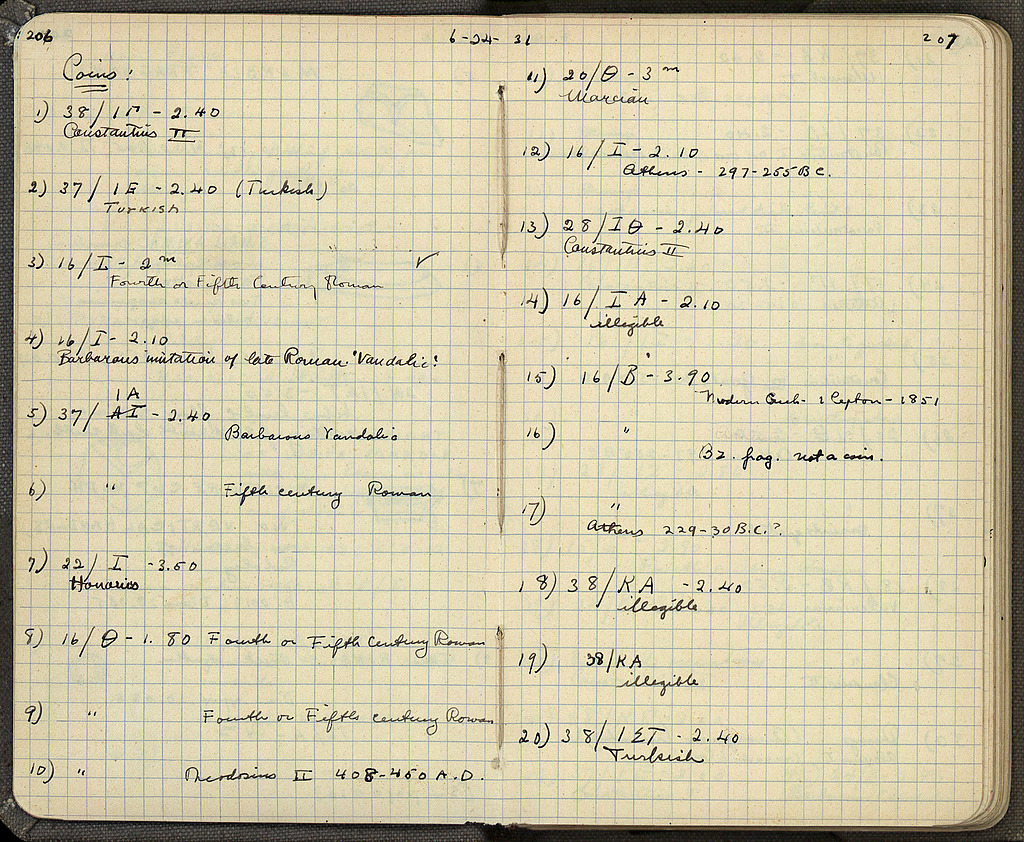 206
6-24-31
Coins:
1) 38/ΙΓ - 2.40
Constantius II
2) 37/ΙΕ - 2.40 (Turkish)
Turkish
3) 16/Ι - 2 m ✓
Fourth or Fifth Century Roman
4) 16/Ι - 2.10
Barbarous imitation of late Roman. "Vandalic"
ΙΑ
5) 37/ΑΙ - 2.40
Barbarous Vandalic
6) " Fifth century Roman
7) 22/Ι - 3.50
Honorius
8) 16/Θ - 1.80 Fourth or Fifth Century Roman
9) " Fourth or Fifth century Roman
10) " Theodosius II 408-450 A.D.
207
11) 20/Θ - 3 m
Marcian
12) 16/Ι - 2.10
Athens - 297-255 B.C.
13) 28/ΙΘ - 2.40
Constantius II
14) 16/ΙΑ - 2.10
illegible
15) 16/Β" - 3.90
Modern Greek - 1 Lepton - 1851
16) "
Bz. frag. not a coin.
17) "
Athens 229-30 B.C.?
18) 38/ΚΑ - 2.40
illegible
19) 38/ΚΑ
illegible
20) 38/ΙΣΤ - 2.40
Turkish